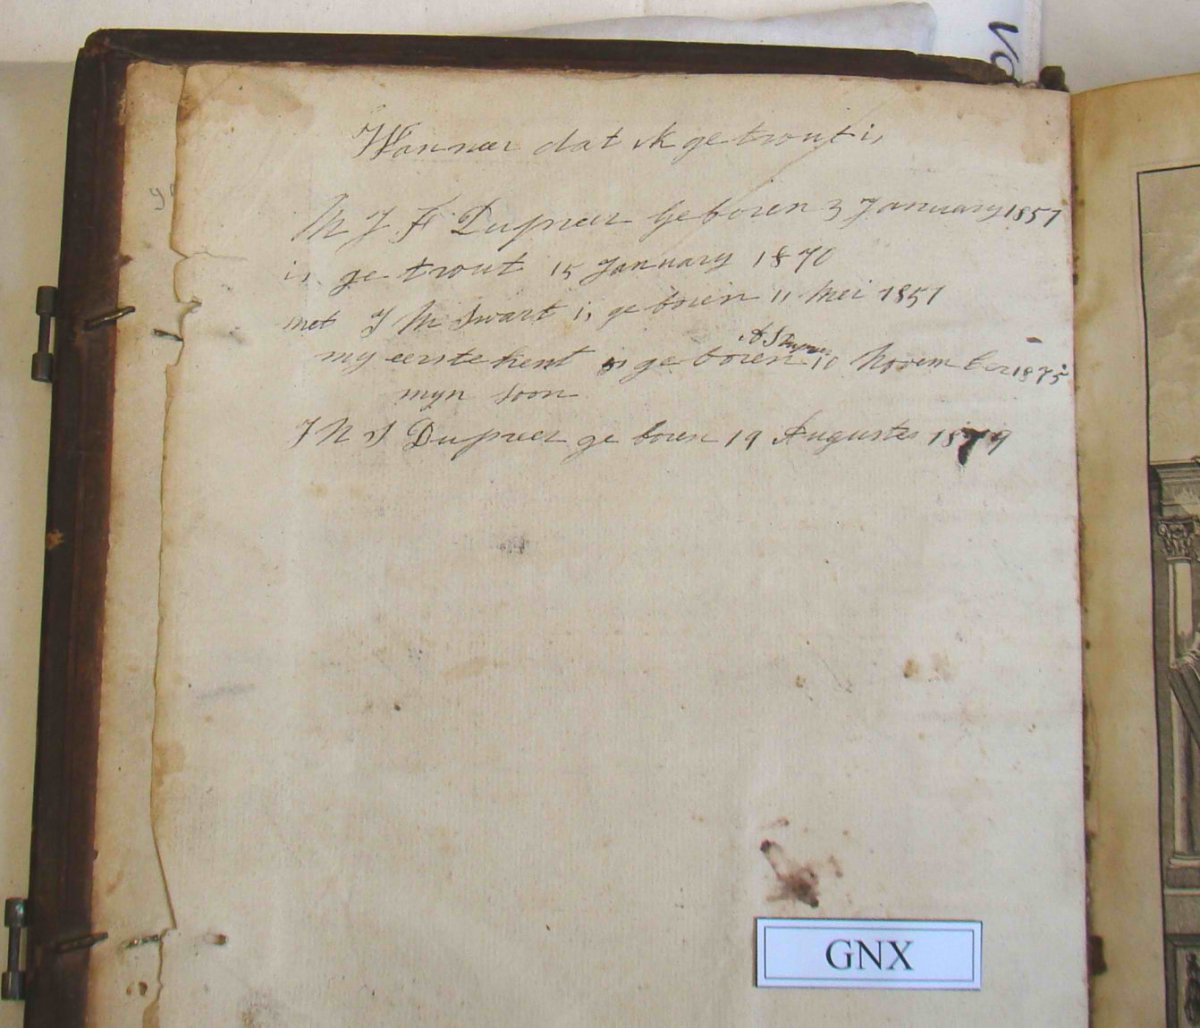 Wanneer dat ik getrout is
M J F Dupreez geboren 3 January 1851
is getrout 15 January 1870
met J M Swart is geboren 11 Mei 1851
myn eerste kent is geboren 10 November 1875
myn soon
J N J Dupreez geboren 19 Augustes 1879
GNX